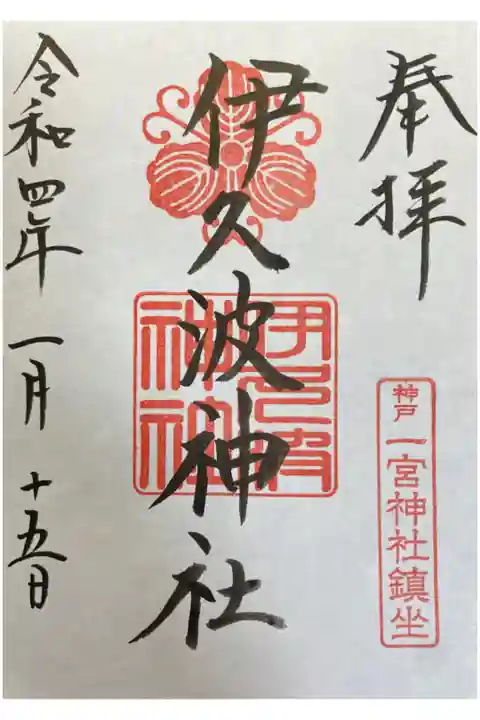 奉拝
神戸 一宮神社鎮坐
伊久波神社
令和四年 一月 十五日